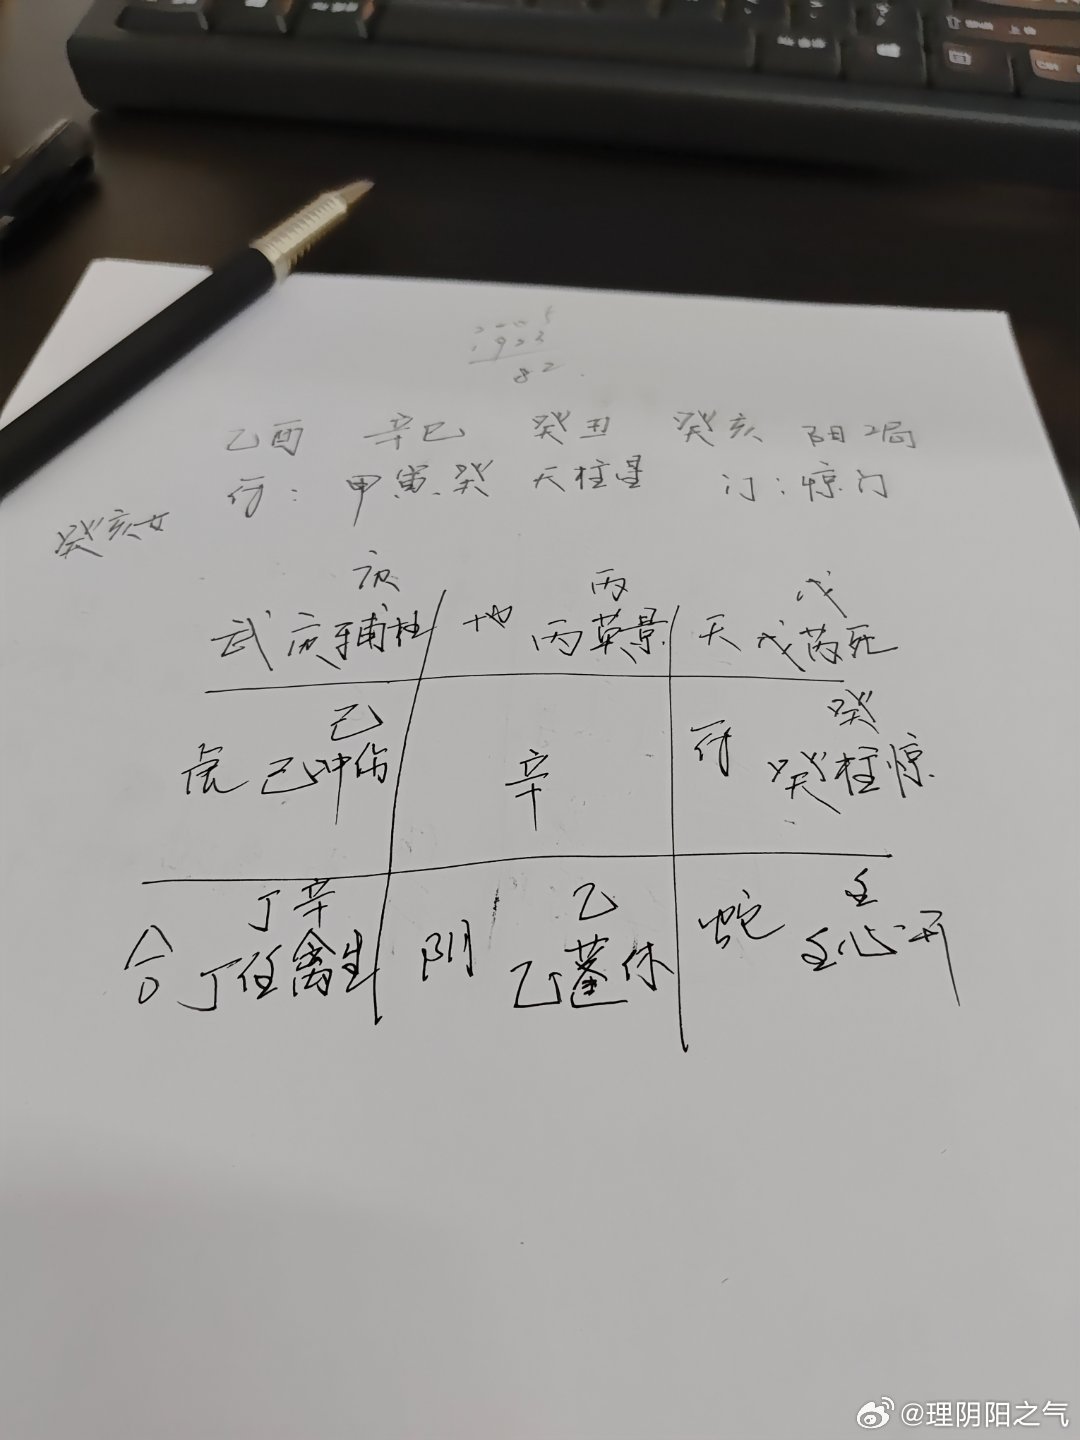 82
乙酉 辛巳 癸丑 癸亥 阴2局
符：甲寅、癸 天柱星 门：惊门
癸亥女
庚 丙 戊
武 庚辅杜 地 丙英景 天 戊芮死
己 癸
虎 己冲伤 辛 符 癸柱惊
丁辛 乙 壬
合 丁任禽生 阴 乙蓬休 蛇 壬心开
@理阴阳之气